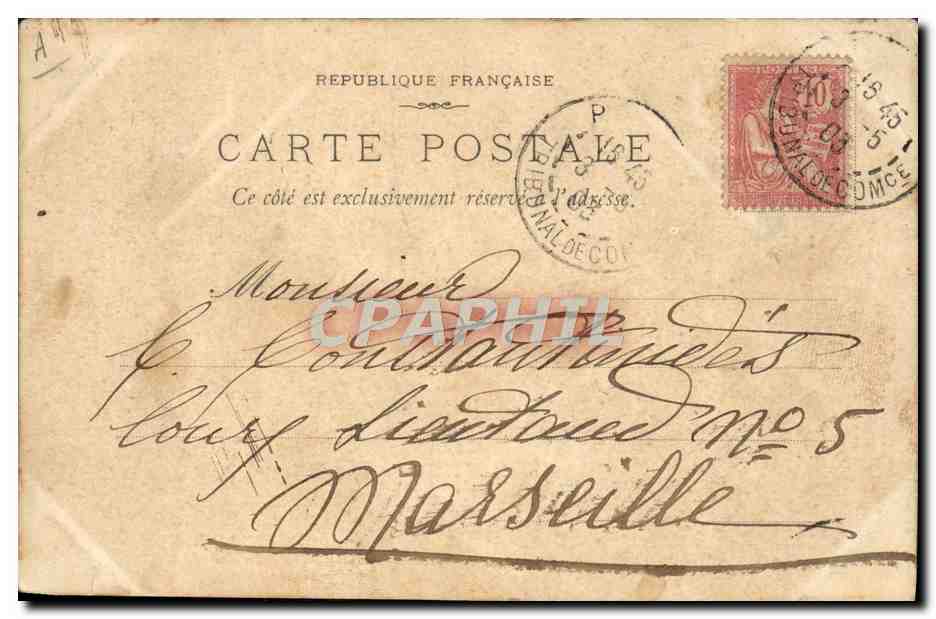 A
REPUBLIQUE FRANÇAISE
CARTE POSTALE
Ce côté est exclusivement réservé à l'adresse.
P
16 45
TRIBUNAL DE COM
10
16 45
TRIBUNAL DE COMCE
CPAPHIL
Monsieur
C. Constantinidès
Cours Lieutaud no 5
Marseille